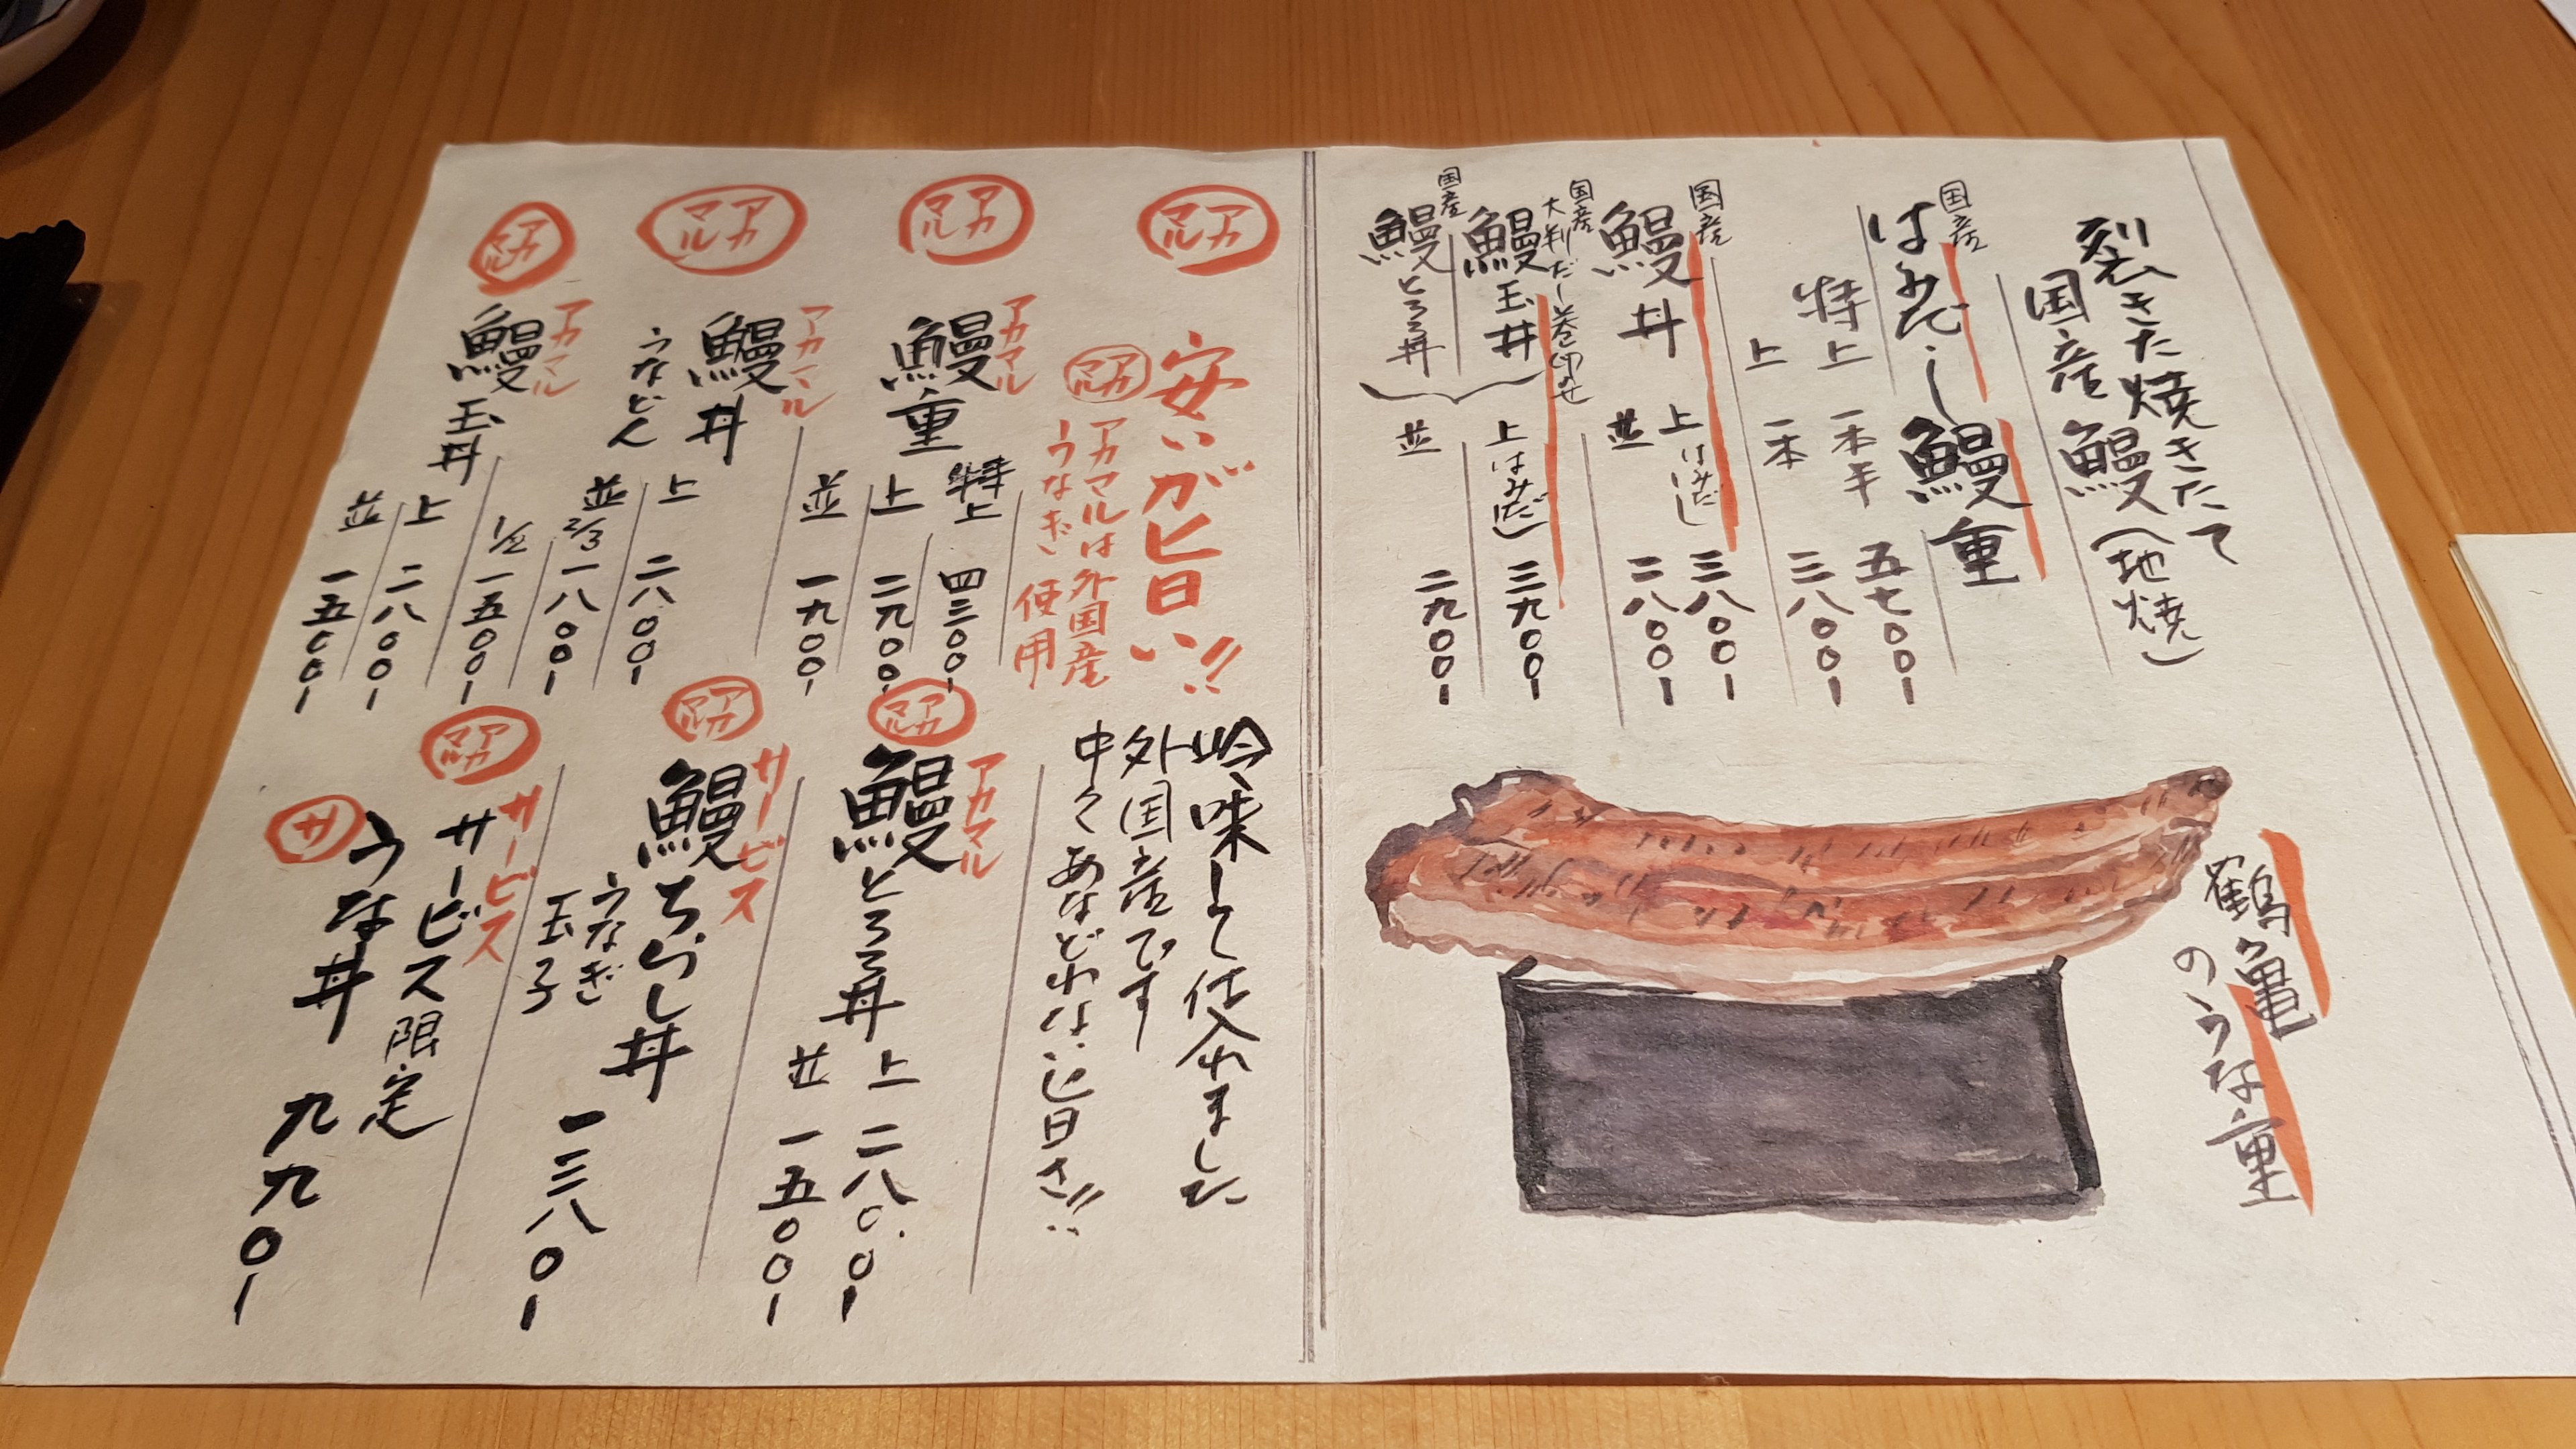 裂きたて焼きたて
国産鰻(地焼)
国産
はみだし鰻重
特上 一本半 五七〇〇-
上 一本 三八〇〇-
国産
鰻丼
上はみだし 三八〇〇-
並 二八〇〇-
国産
大判だし巻卵のせ
鰻玉丼
国産
鰻とろろ丼
上はみだし 三九〇〇-
並 二九〇〇-
鶴亀
のうな重
アカマル
安いが旨い!!
アカマル
アカマルは外国産
うなぎ使用
吟味して仕入れました
外国産です
中々あなどれない旨さ!!
アカマル
アカマル
鰻重
特上 四三〇〇-
上 二九〇〇-
並 一九〇〇-
アカマル
アカマル
鰻丼
うなどん
上 二八〇〇-
並 2/3 一八〇〇-
1/2 一五〇〇-
アカマル
アカマル
鰻玉丼
上 二八〇〇-
並 一五〇〇-
アカマル
アカマル
鰻とろろ丼
上 二八〇〇-
並 一五〇〇-
アカマル
サービス
鰻ちらし丼
うなぎ
玉子
一三八〇-
アカマル
サービス
サービス限定
サ
うな丼 九九〇-